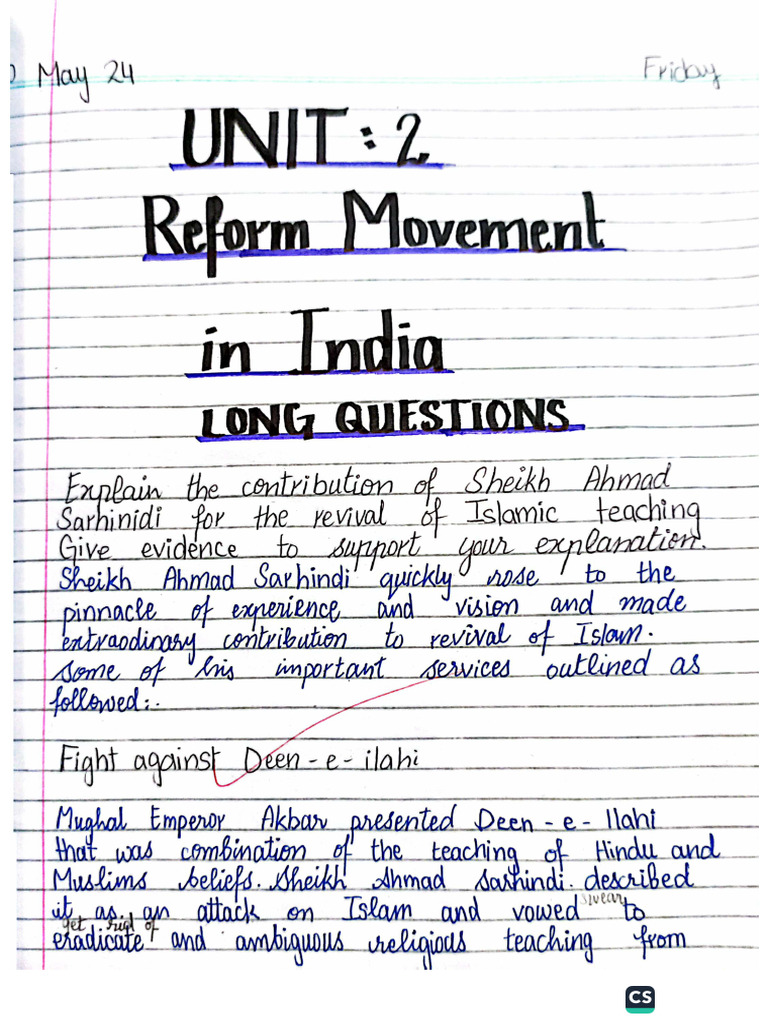 May 24 Friday
UNIT: 2
Reform Movement
in India
LONG QUESTIONS
Explain the contribution of Sheikh Ahmad
Sarhinidi for the revival of Islamic teaching
Give evidence to support your explanation.
Sheikh Ahmad Sarhindi quickly rose to the
pinnacle of experience and vision and made
extraodinary contribution to revival of Islam.
Some of his important services outlined as
followed:.
Fight against Deen-e-ilahi
Mughal Emperor Akbar presented Deen-e-Ilahi
that was combination of the teaching of Hindu and
Muslims beliefs. Sheikh Ahmad Sarhindi. described
swear
it as an attack on Islam and vowed to
get rid of
eradicate and ambiguous religious teaching from
CS